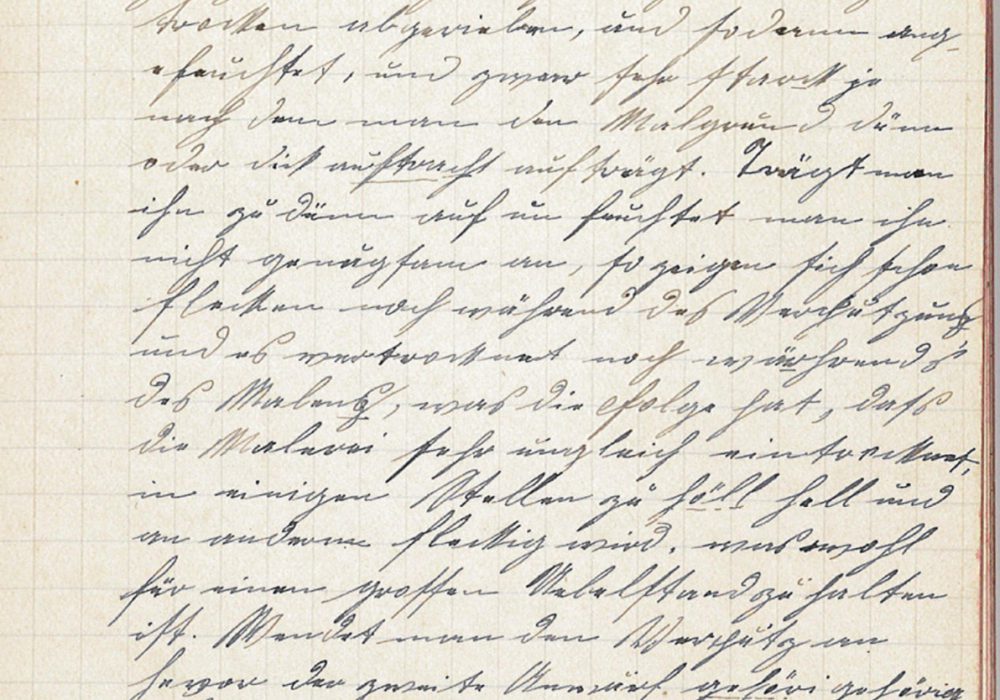 trocken abgerieben, und sodann ang-
efeuchtet, und zwar sehr starck je
nach dem man den Malgrund dünn
oder dick aufträcht aufträgt. Trägt man
ihn zu dünn auf un feuchtet man ihn
nicht genugsam an, so zeigen sich schon
flecken noch während des Verputzung
und es vertrocknet noch währends
des Malens, was die Folge hat, dass
die Malerei sehr ungleich eintrocknet,
in einigen Stellen zu höll hell und
an anderen fleckig wird, was wohl
für einen grossen Uebelstand zu halten
ist. Wendet man den Verputz an
bevor der zweite Anwurf gehöri gehörig